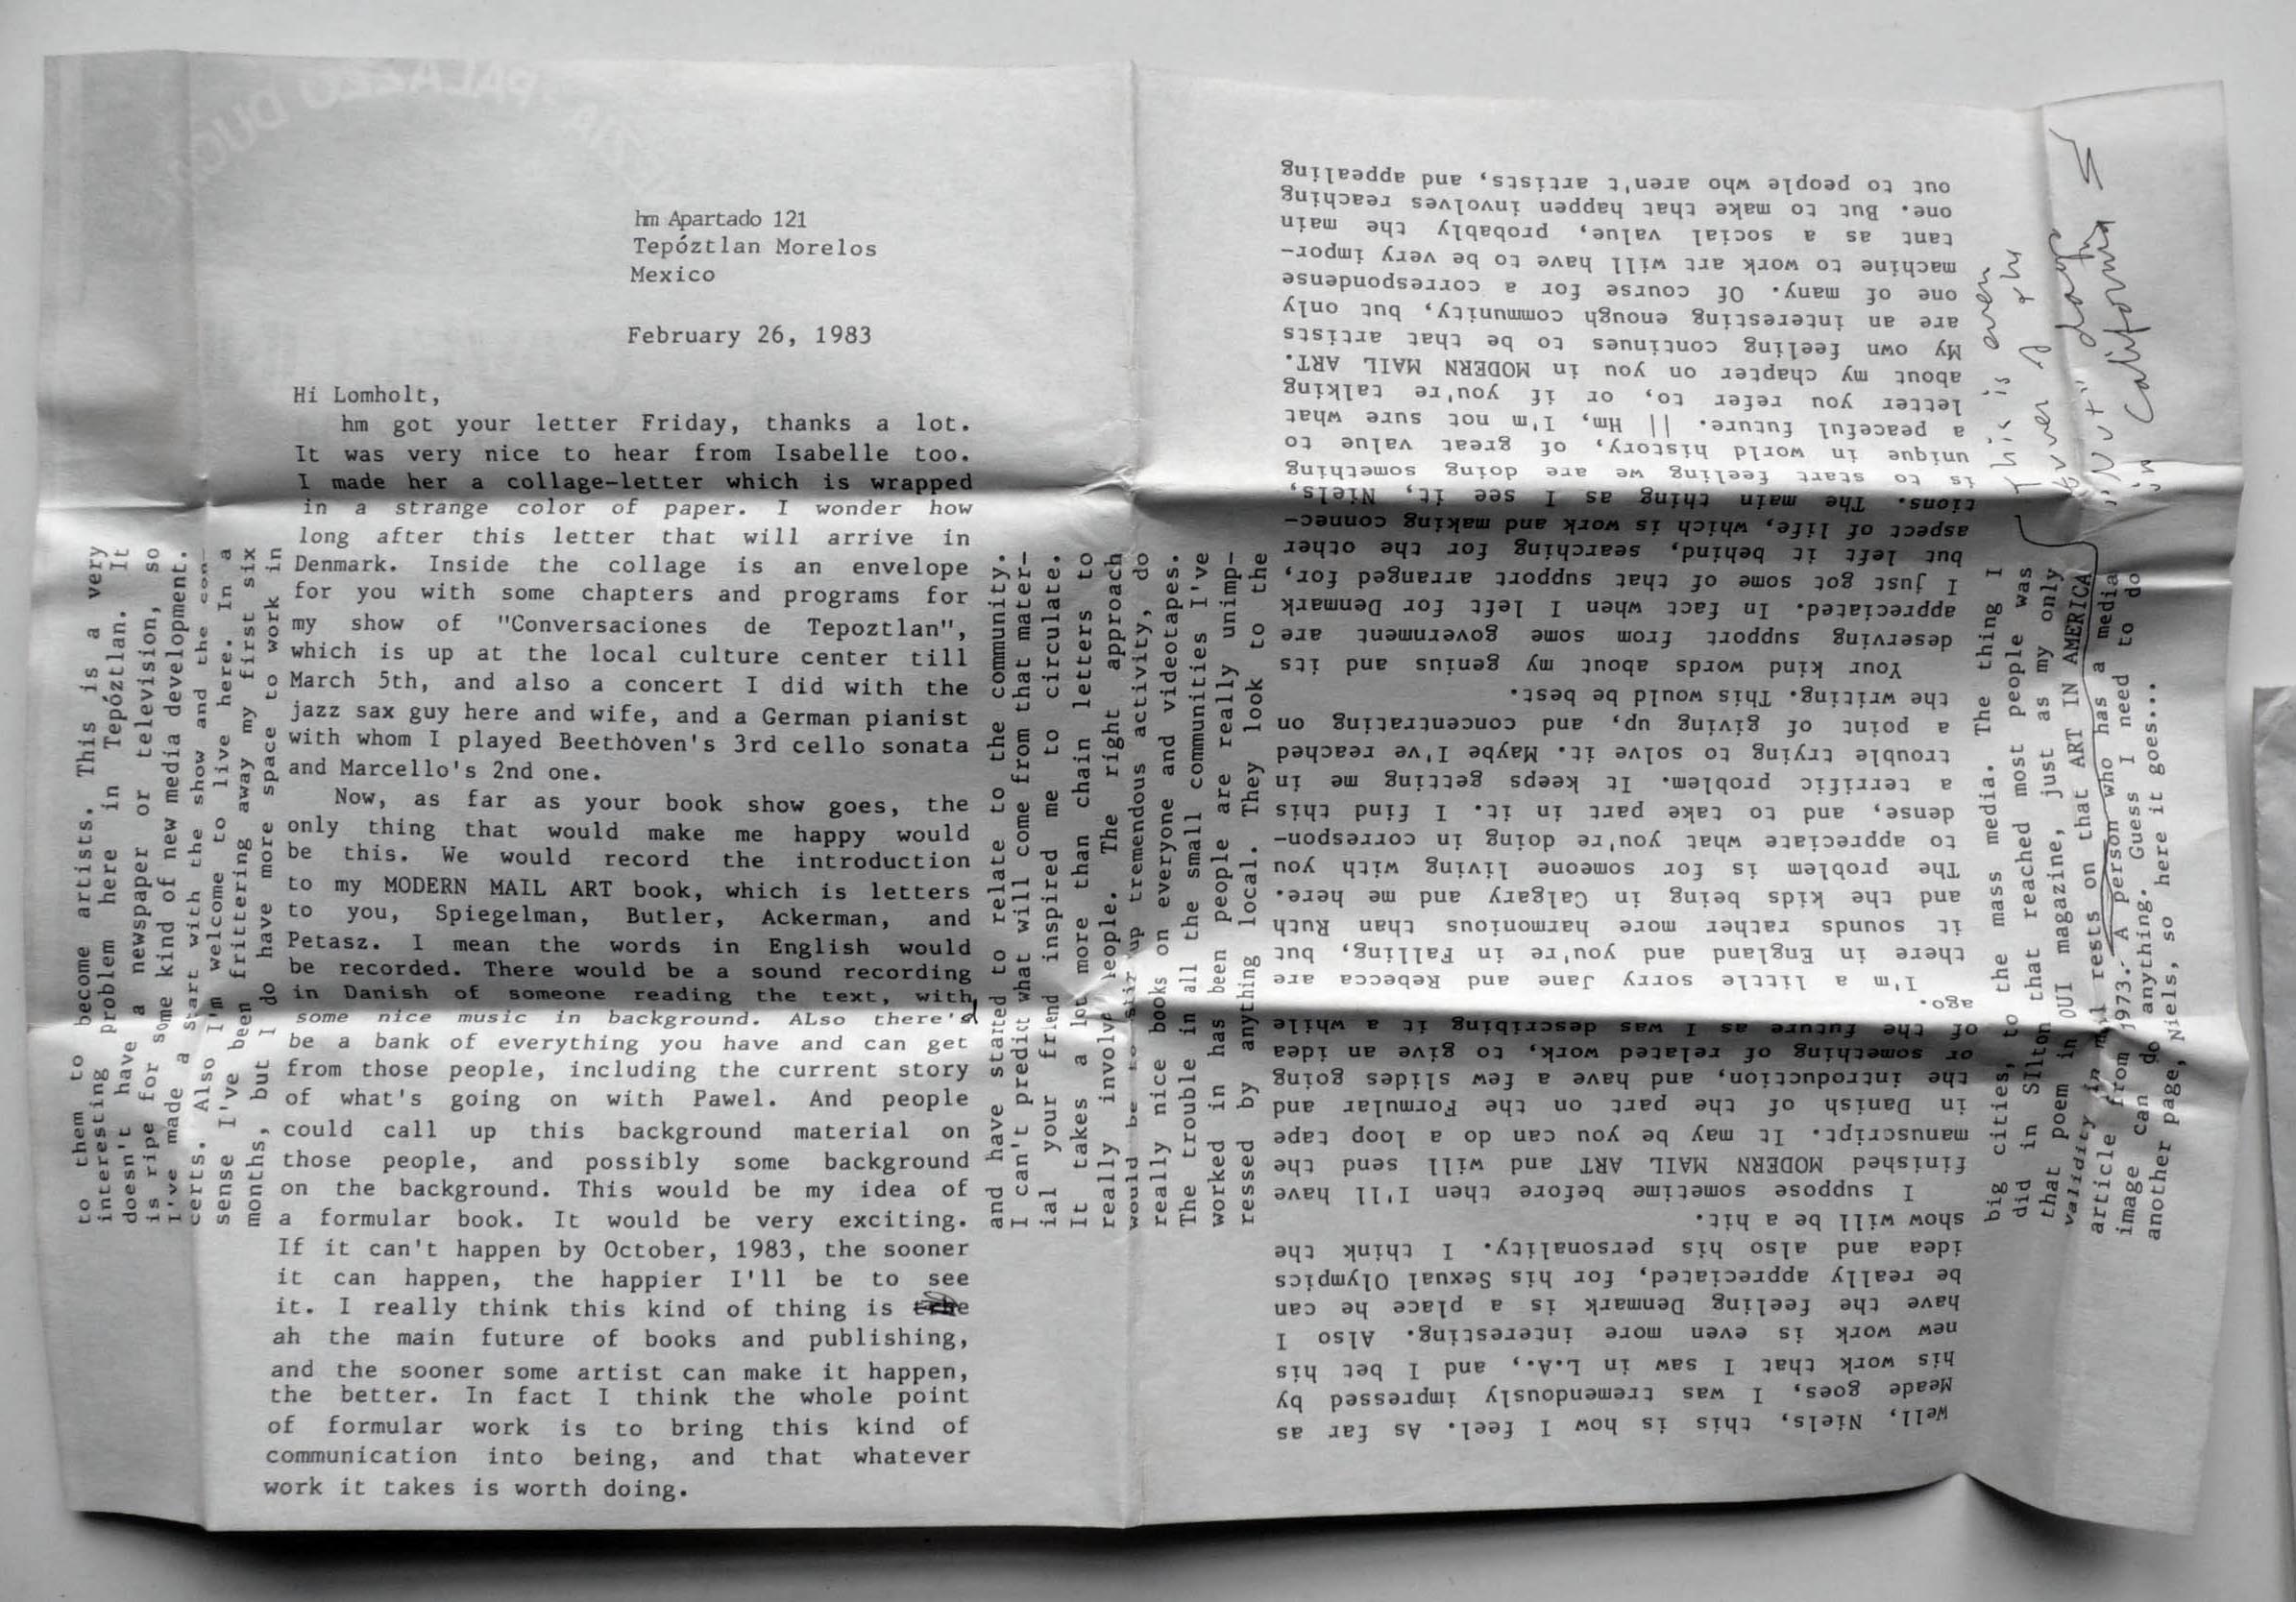 hm Apartado 121
Tepóztlan Morelos
Mexico
February 26, 1983
Hi Lomholt,
hm got your letter Friday, thanks a lot.
It was very nice to hear from Isabelle too.
I made her a collage-letter which is wrapped
in a strange color of paper. I wonder how
long after this letter that will arrive in
Denmark. Inside the collage is an envelope
for you with some chapters and programs for
my show of "Conversaciones de Tepoztlan",
which is up at the local culture center till
March 5th, and also a concert I did with the
jazz sax guy here and wife, and a German pianist
with whom I played Beethoven's 3rd cello sonata
and Marcello's 2nd one.
Now, as far as your book show goes, the
only thing that would make me happy would
be this. We would record the introduction
to my MODERN MAIL ART book, which is letters
to you, Spiegelman, Butler, Ackerman, and
Petasz. I mean the words in English would
be recorded. There would be a sound recording
in Danish of someone reading the text, with
some nice music in background. ALso there'd
be a bank of everything you have and can get
from those people, including the current story
of what's going on with Pawel. And people
could call up this background material on
those people, and possibly some background
on the background. This would be my idea of
a formular book. It would be very exciting.
If it can't happen by October, 1983, the sooner
it can happen, the happier I'll be to see
it. I really think this kind of thing is
ah the main future of books and publishing,
and the sooner some artist can make it happen,
the better. In fact I think the whole point
of formular work is to bring this kind of
communication into being, and that whatever
work it takes is worth doing.
Well, Niels, this is how I feel. As far as
Meade goes, I was tremendously impressed by
his work that I saw in L.A., and I bet his
new work is even more interesting. Also I
have the feeling Denmark is a place he can
be really appreciated, for his Sexual Olympics
idea and also his personality. I think the
show will be a hit.
I suppose sometime before then I'll have
finished MODERN MAIL ART and will send the
manuscript. It may be you can do a loop tape
in Danish of the part on the Formular and
the introduction, and have a few slides going
or something of related work, to give an idea
of the future as I was describing it a while
ago.
I'm a little sorry Jane and Rebecca are
there in England and you're in Falling, but
it sounds rather more harmonious than Ruth
and the kids being in Calgary and me here.
The problem is for someone living with you
to appreciate what you're doing in correspon-
dense, and to take part in it. I find this
a terrific problem. It keeps getting me in
trouble trying to solve it. Maybe I've reached
a point of giving up, and concentrating on
the writing. This would be best.
Your kind words about my genius and its
deserving support from some government are
appreciated. In fact when I left for Denmark
I just got some of that support arranged for,
but left it behind, searching for the other
aspect of life, which is work and making connec-
tions. The main thing as I see it, Niels,
is to start feeling we are doing something
unique in world history, of great value to
a peaceful future. || Hm, I'm not sure what
letter you refer to, or if you're talking
about my chapter on you in MODERN MAIL ART.
My own feeling continues to be that artists
are an interesting enough community, but only
one of many. Of course for a correspondense
machine to work art will have to be very impor-
tant as a social value, probably the main
one. But to make that happen involves reaching
out to people who aren't artists, and appealing
to them to become artists. This is a very
interesting problem here in Tepóztlan. It
doesn't have a newspaper or television, so
is ripe for some kind of new media development.
I've made a start with the show and the con-
certs. Also I'm welcome to live here. In a
sense I've been frittering away my first six
months, but I do have more space to work in
and have started to relate to the community.
I can't predict what will come from that mater-
ial your friend inspired me to circulate.
It takes a lot more than chain letters to
really involve people. The right approach
would be to stir up tremendous activity, do
really nice books on everyone and videotapes.
The trouble in all the small communities I've
worked in has been people are really unimp-
ressed by anything local. They look to the
big cities, to the mass media. The thing I
did in SIlton that reached most people was
that poem in OUI magazine, just as my only
validity in mail rests on that ART IN AMERICA
article from 1973. A person who has a media
image can do anything. Guess I need to do
another page, Niels, so here it goes...
This is even
truer of the
"Nut" days
in California